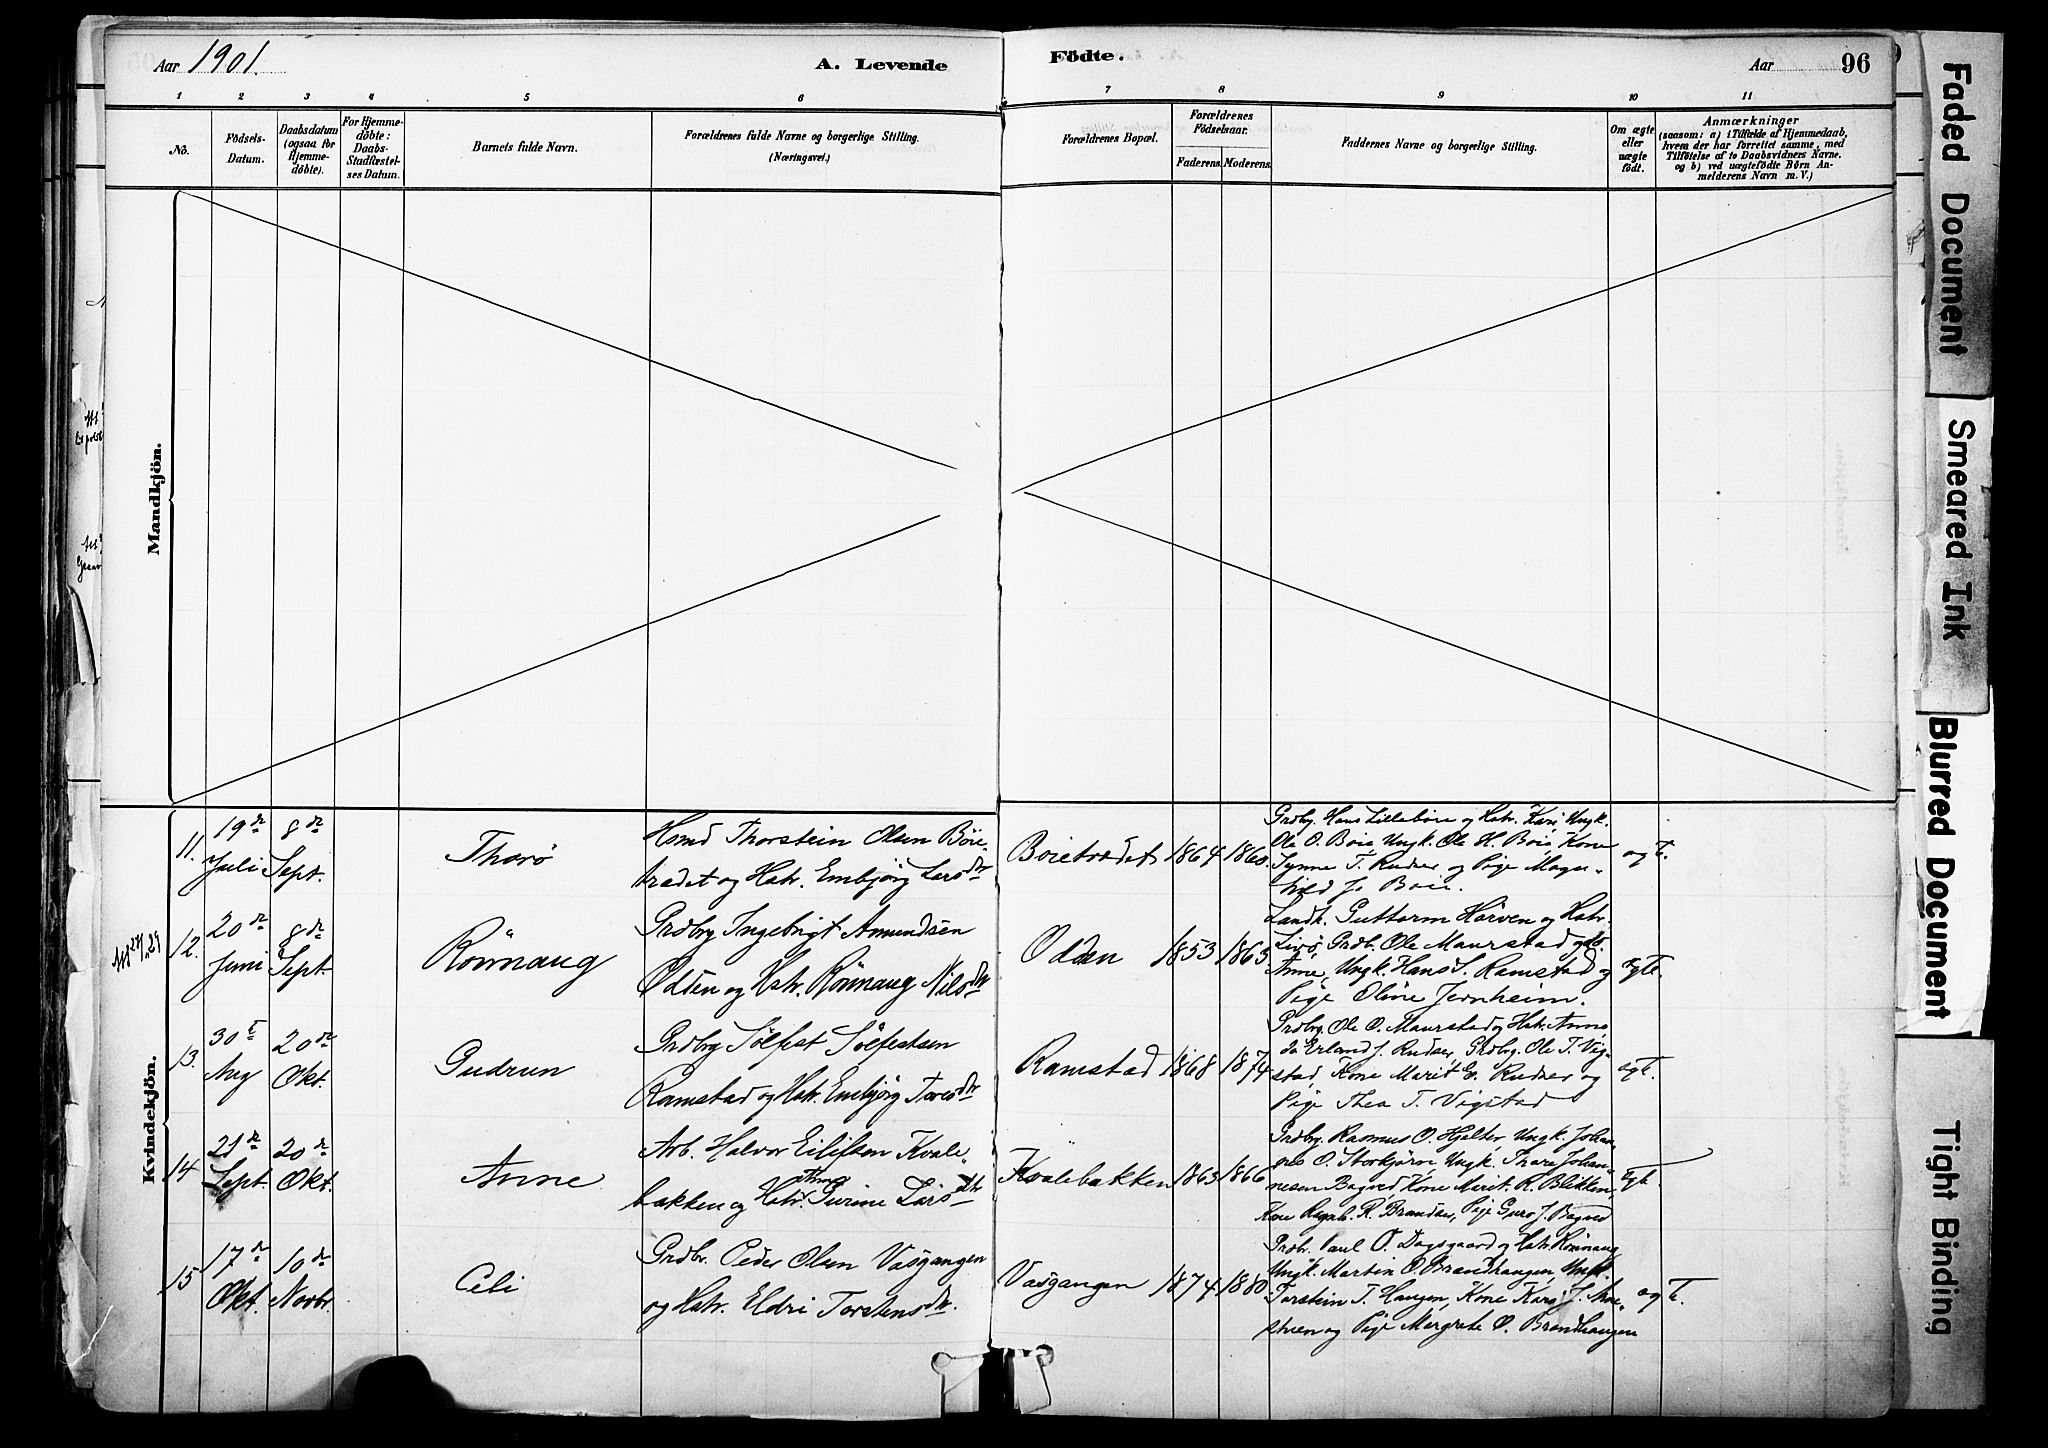 Aar 1901.
A. Levende
Födte.
Aar
96
1 2 3 4 5 6 7 8 9 10 11
No.
Födsels-
Datum.
Daabsdatum
(ogsaa for
Hjemme-
döbte).
For Hjemme-
döbte:
Daabs-
Stadfæstel-
ses Datum.
Barnets fulde Navn.
Forældrenes fulde Navne og borgerlige Stilling.
(Næringsvei.)
Forældrenes Bopæl.
Forældrenes
Födselsaar.
Faderens. Moderens.
Faddernes Navne og borgerlige Stilling.
Om ægte
eller
uægte
födt.
Anmærkninger
(saasom: a) i Tilfælde af Hjemmedaab,
hvem der har forrettet samme, med
Tilföielse af to Daabsvidners Navne.
og b) ved uægtefödte Börn An-
melderens Navn m. V.)
Mandkjön.
Kvindekjön.
11.
19de
Juli
8de
Sept.
Thorö
Hsmd Thorstein Olsen Böie-
trædet og Hstr. Embjörg Larsdtr
Boietrædet
1864 1860
Grdbr. Hans Lilleböie og Hstr. Kari, Ungk.
Ole O. Boie, Ungk. Ole H. Boie, Kone
Synne T. Rudser og Pige Magn-
hild J. Boie.
ægte.
12.
20de
Juni
8de
Sept.
Rönnaug
Grdbr Ingebrigt Amundsen
Odden og Hstr. Rönnaug Nilsdtr
Odden
1853 1863
Landh. Guttorm Hörven og Hstr.
Livö, Grdb. Ole Maurstad og do.
Anne, Ungk. Hans S. Ramstad og
Pige Oline Jernheim.
ægte.
13.
30te
Aug
20de
Okt.
Gudrun
Grdbr Sölfest Sölfestsen
Ramstad og Hstr. Embjörg Toresdtr
Ramstad
1868 1874
Grdbr. Ole O. Maurstad og Hstr. Anne
do Erland J. Rudser, Grdbr. Ole T. Vig-
stad, Kone Marit E. Rudser og
Pige Thea T. Vigstad
ægt.
14
21de
Sept.
20de
Okt.
Anne
Arb. Halvor Eilifsen Kvale-
Anne
bakken og Hstr. Gurine Larsdtr
Kvalebakken
1863 1866
Grdbr. Rasmus O. Hjelter, Ungk. Johan-
nes O. Storkjörn, Ungk. Thore Johan-
nesen Bagved, Kone Marit R. Blekken,
Kone Ragnh. R. Brandser, Pige Guro J. Bagved
ægt.
15
17de
Okt.
10de
Novbr.
Celi
Grdbr. Peder Olsen Vasgangen
og Hstr. Eldri Torstensdtr.
Vasgangen
1874 1880
Grdbr. Paul O. Dagsgaard og Hstr. Rönnaug
Ungk. Martin O. Brændhaugen, Ungk.
Torstein T. Haugen, Kone Kari J. Moe-
stuen og Pige Mergrete O. Brændhaugen
ægte.
Faded Document
Smeared Ink
Blurred Document
Tight Binding